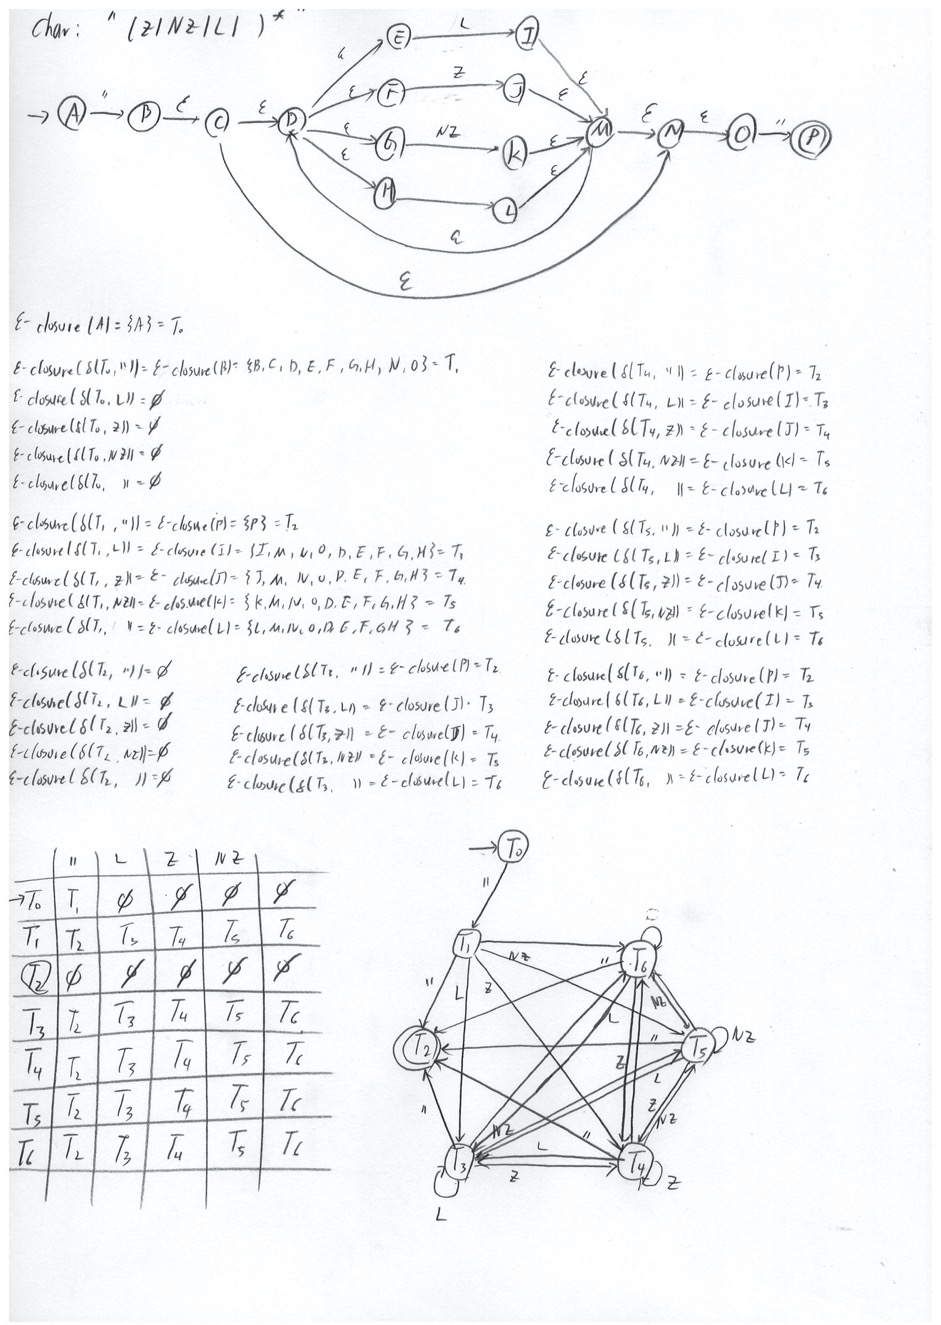 Char: " (Z|NZ|L| )* "
E L I
ε ε
F Z J
ε ε
A " B ε C ε D M ε N ε O " P
ε G NZ K ε
ε H L ε
ε
ε
ε-closure(A) = {A} = T0
ε-closure(δ(T0, ")) = ε-closure(B) = {B, C, D, E, F, G, H, N, O} = T1
ε-closure(δ(T0, L)) = ∅
ε-closure(δ(T0, Z)) = ∅
ε-closure(δ(T0, NZ)) = ∅
ε-closure(δ(T0,  )) = ∅
ε-closure(δ(T1, ")) = ε-closure(P) = {P} = T2
ε-closure(δ(T1, L)) = ε-closure(I) = {I, M, N, O, D, E, F, G, H} = T3
ε-closure(δ(T1, Z)) = ε-closure(J) = {J, M, N, O, D, E, F, G, H} = T4
ε-closure(δ(T1, NZ)) = ε-closure(K) = {K, M, N, O, D, E, F, G, H} = T5
ε-closure(δ(T1,  )) = ε-closure(L) = {L, M, N, O, D, E, F, G H} = T6
ε-closure(δ(T2, ")) = ∅
ε-closure(δ(T2, L)) = ∅
ε-closure(δ(T2, Z)) = ∅
ε-closure(δ(T2, NZ)) = ∅
ε-closure(δ(T2,  )) = ∅
ε-closure(δ(T3, ")) = ε-closure(P) = T2
ε-closure(δ(T3, L)) = ε-closure(I) = T3
ε-closure(δ(T3, Z)) = ε-closure(J) = T4
ε-closure(δ(T3, NZ)) = ε-closure(K) = T5
ε-closure(δ(T3,  )) = ε-closure(L) = T6
ε-closure(δ(T4, ")) = ε-closure(P) = T2
ε-closure(δ(T4, L)) = ε-closure(I) = T3
ε-closure(δ(T4, Z)) = ε-closure(J) = T4
ε-closure(δ(T4, NZ)) = ε-closure(K) = T5
ε-closure(δ(T4,  )) = ε-closure(L) = T6
ε-closure(δ(T5, ")) = ε-closure(P) = T2
ε-closure(δ(T5, L)) = ε-closure(I) = T3
ε-closure(δ(T5, Z)) = ε-closure(J) = T4
ε-closure(δ(T5, NZ)) = ε-closure(K) = T5
ε-closure(δ(T5,  )) = ε-closure(L) = T6
ε-closure(δ(T6, ")) = ε-closure(P) = T2
ε-closure(δ(T6, L)) = ε-closure(I) = T3
ε-closure(δ(T6, Z)) = ε-closure(J) = T4
ε-closure(δ(T6, NZ)) = ε-closure(K) = T5
ε-closure(δ(T6,  )) = ε-closure(L) = T6
" L Z NZ
→T0 T1 ∅ ∅ ∅ ∅
T1 T2 T3 T4 T5 T6
T2 ∅ ∅ ∅ ∅ ∅
T3 T2 T3 T4 T5 T6
T4 T2 T3 T4 T5 T6
T5 T2 T3 T4 T5 T6
T6 T2 T3 T4 T5 T6
T0
"
T1 NZ " T6
" L Z NZ
L
T2 " T5 NZ
Z L
" NZ L " Z NZ
T3 Z T4 Z
L